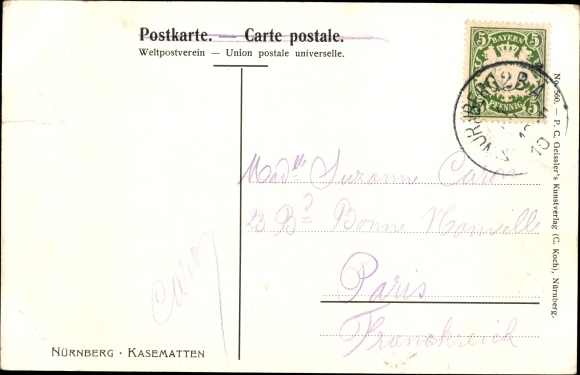 Postkarte. — Carte postale.
Weltpostverein — Union postale universelle.
5 BAYERN 5
5 PFENNIG 5
Melle Suzanne Caro
23 Bd Bonne Nouvelle
Paris
Frankreich
Caro
NÜRNBERG · KASEMATTEN
No. 560. — P. C. Geissler's Kunstverlag (C. Koch), Nürnberg.